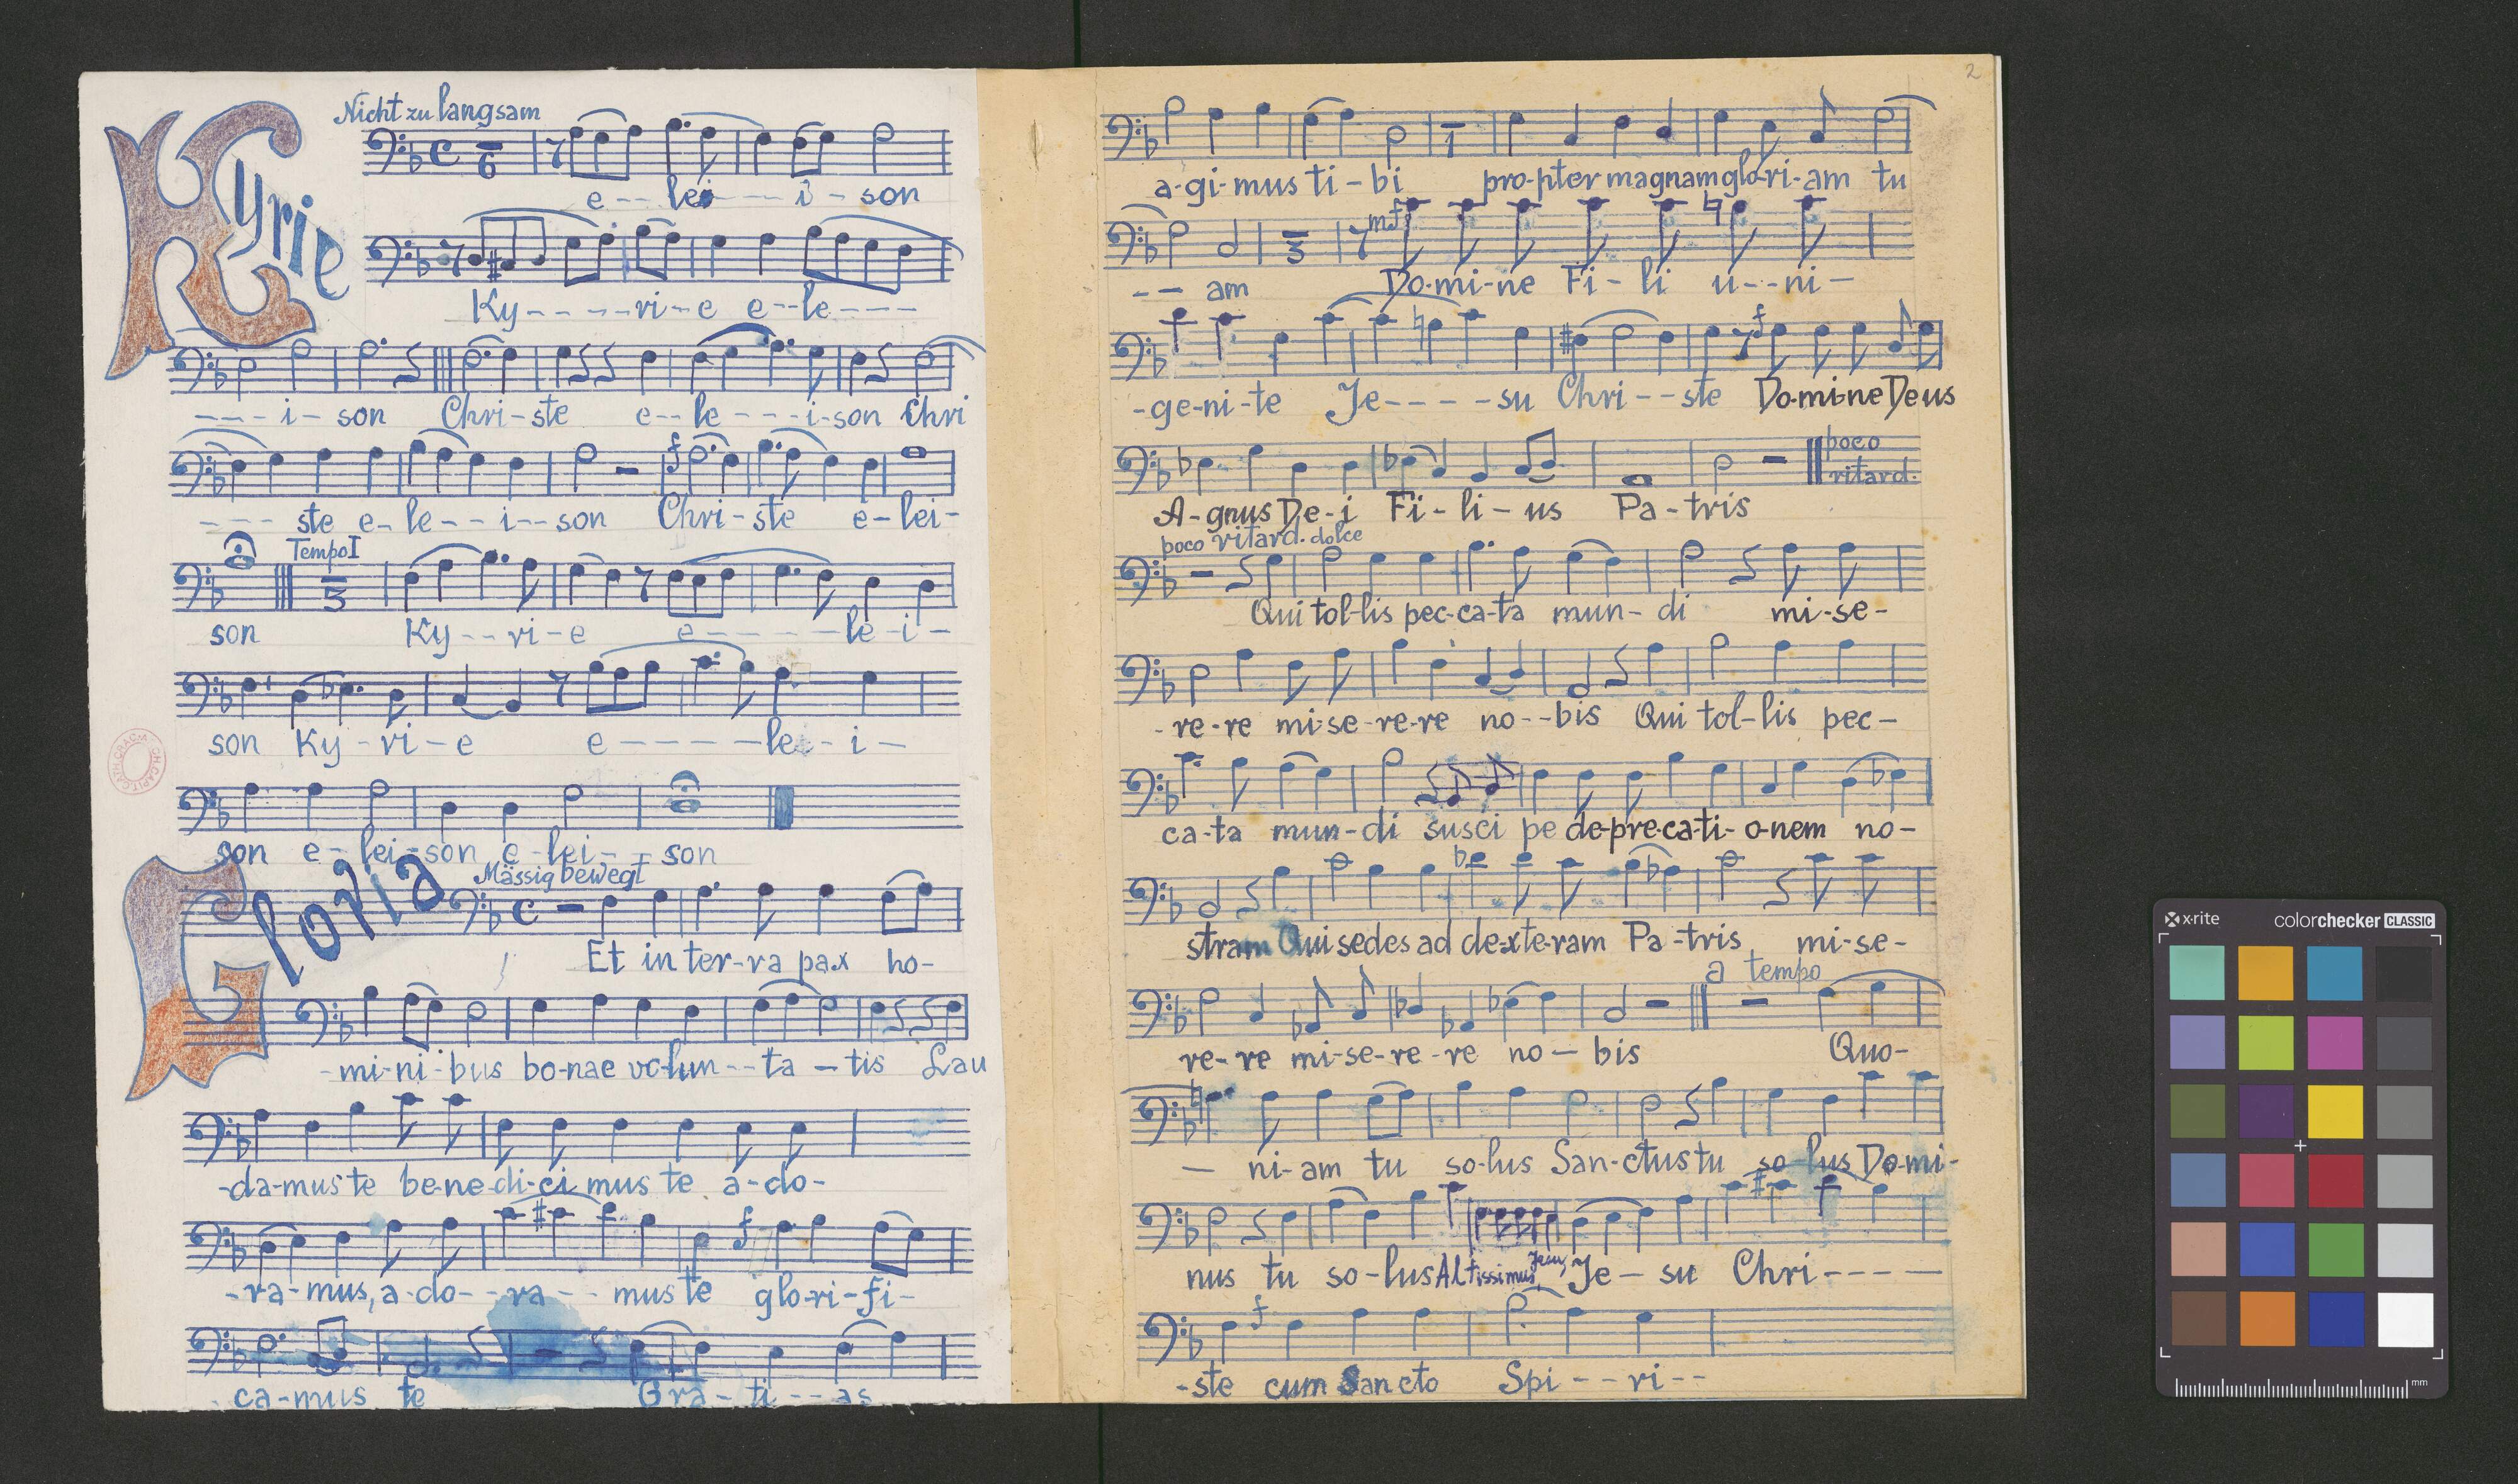 Kyrie
Nicht zu langsam
6
e - - lei - - - - i - son
Ky - - - - - ri - e e - - le - - - -
- - - - i - son Chri - ste e - - le - - - - i - son Chri
- - - - ste e - le - - i - - son Chri - ste e - lei -
Tempo I
3
son Ky - - ri - e e - - - - - - le - i -
son Ky - ri - e e - - - - - - le - - i -
son e - lei - son e - lei - - son
Gloria
Mässig bewegt
Et in ter - ra pax ho -
- mi - ni - bus bo - nae vo - lun - - ta - tis Lau
- da - mus te be - ne - di - ci mus te a - do -
- ra - mus, a - do - - ra - - mus te glo - ri - fi -
f
- ca - mus te Gra - ti - - as
2
1
a - gi - mus ti - bi pro - pter magnam glo - ri - am tu
3 mf
- - am Do - mi - ne Fi - li u - - ni -
f
- ge - ni - te Je - - - - - su Chri - - ste Do - mi - ne Deus
poco
ritard.
A - gnus De - i Fi - li - us Pa - tris
poco ritard. dolce
Qui tol - lis pec - ca - ta mun - di mi - se -
- re - re mi - se - re - re no - - bis Qui tol - lis pec -
ca - ta mun - di susci pe de - pre - ca - ti - o - nem no -
stram Qui sedes ad de - xte - ram Pa - tris mi - se -
a tempo
re - re mi - se - re - re no - bis Quo -
- ni - am tu so - lus San - ctus tu so - lus Do - mi -
nus tu so - lus Altissimus, Jesu, Je - su Chri - - - - -
f
- ste cum Sancto Spi - - ri - -
x-rite colorchecker CLASSIC
mm